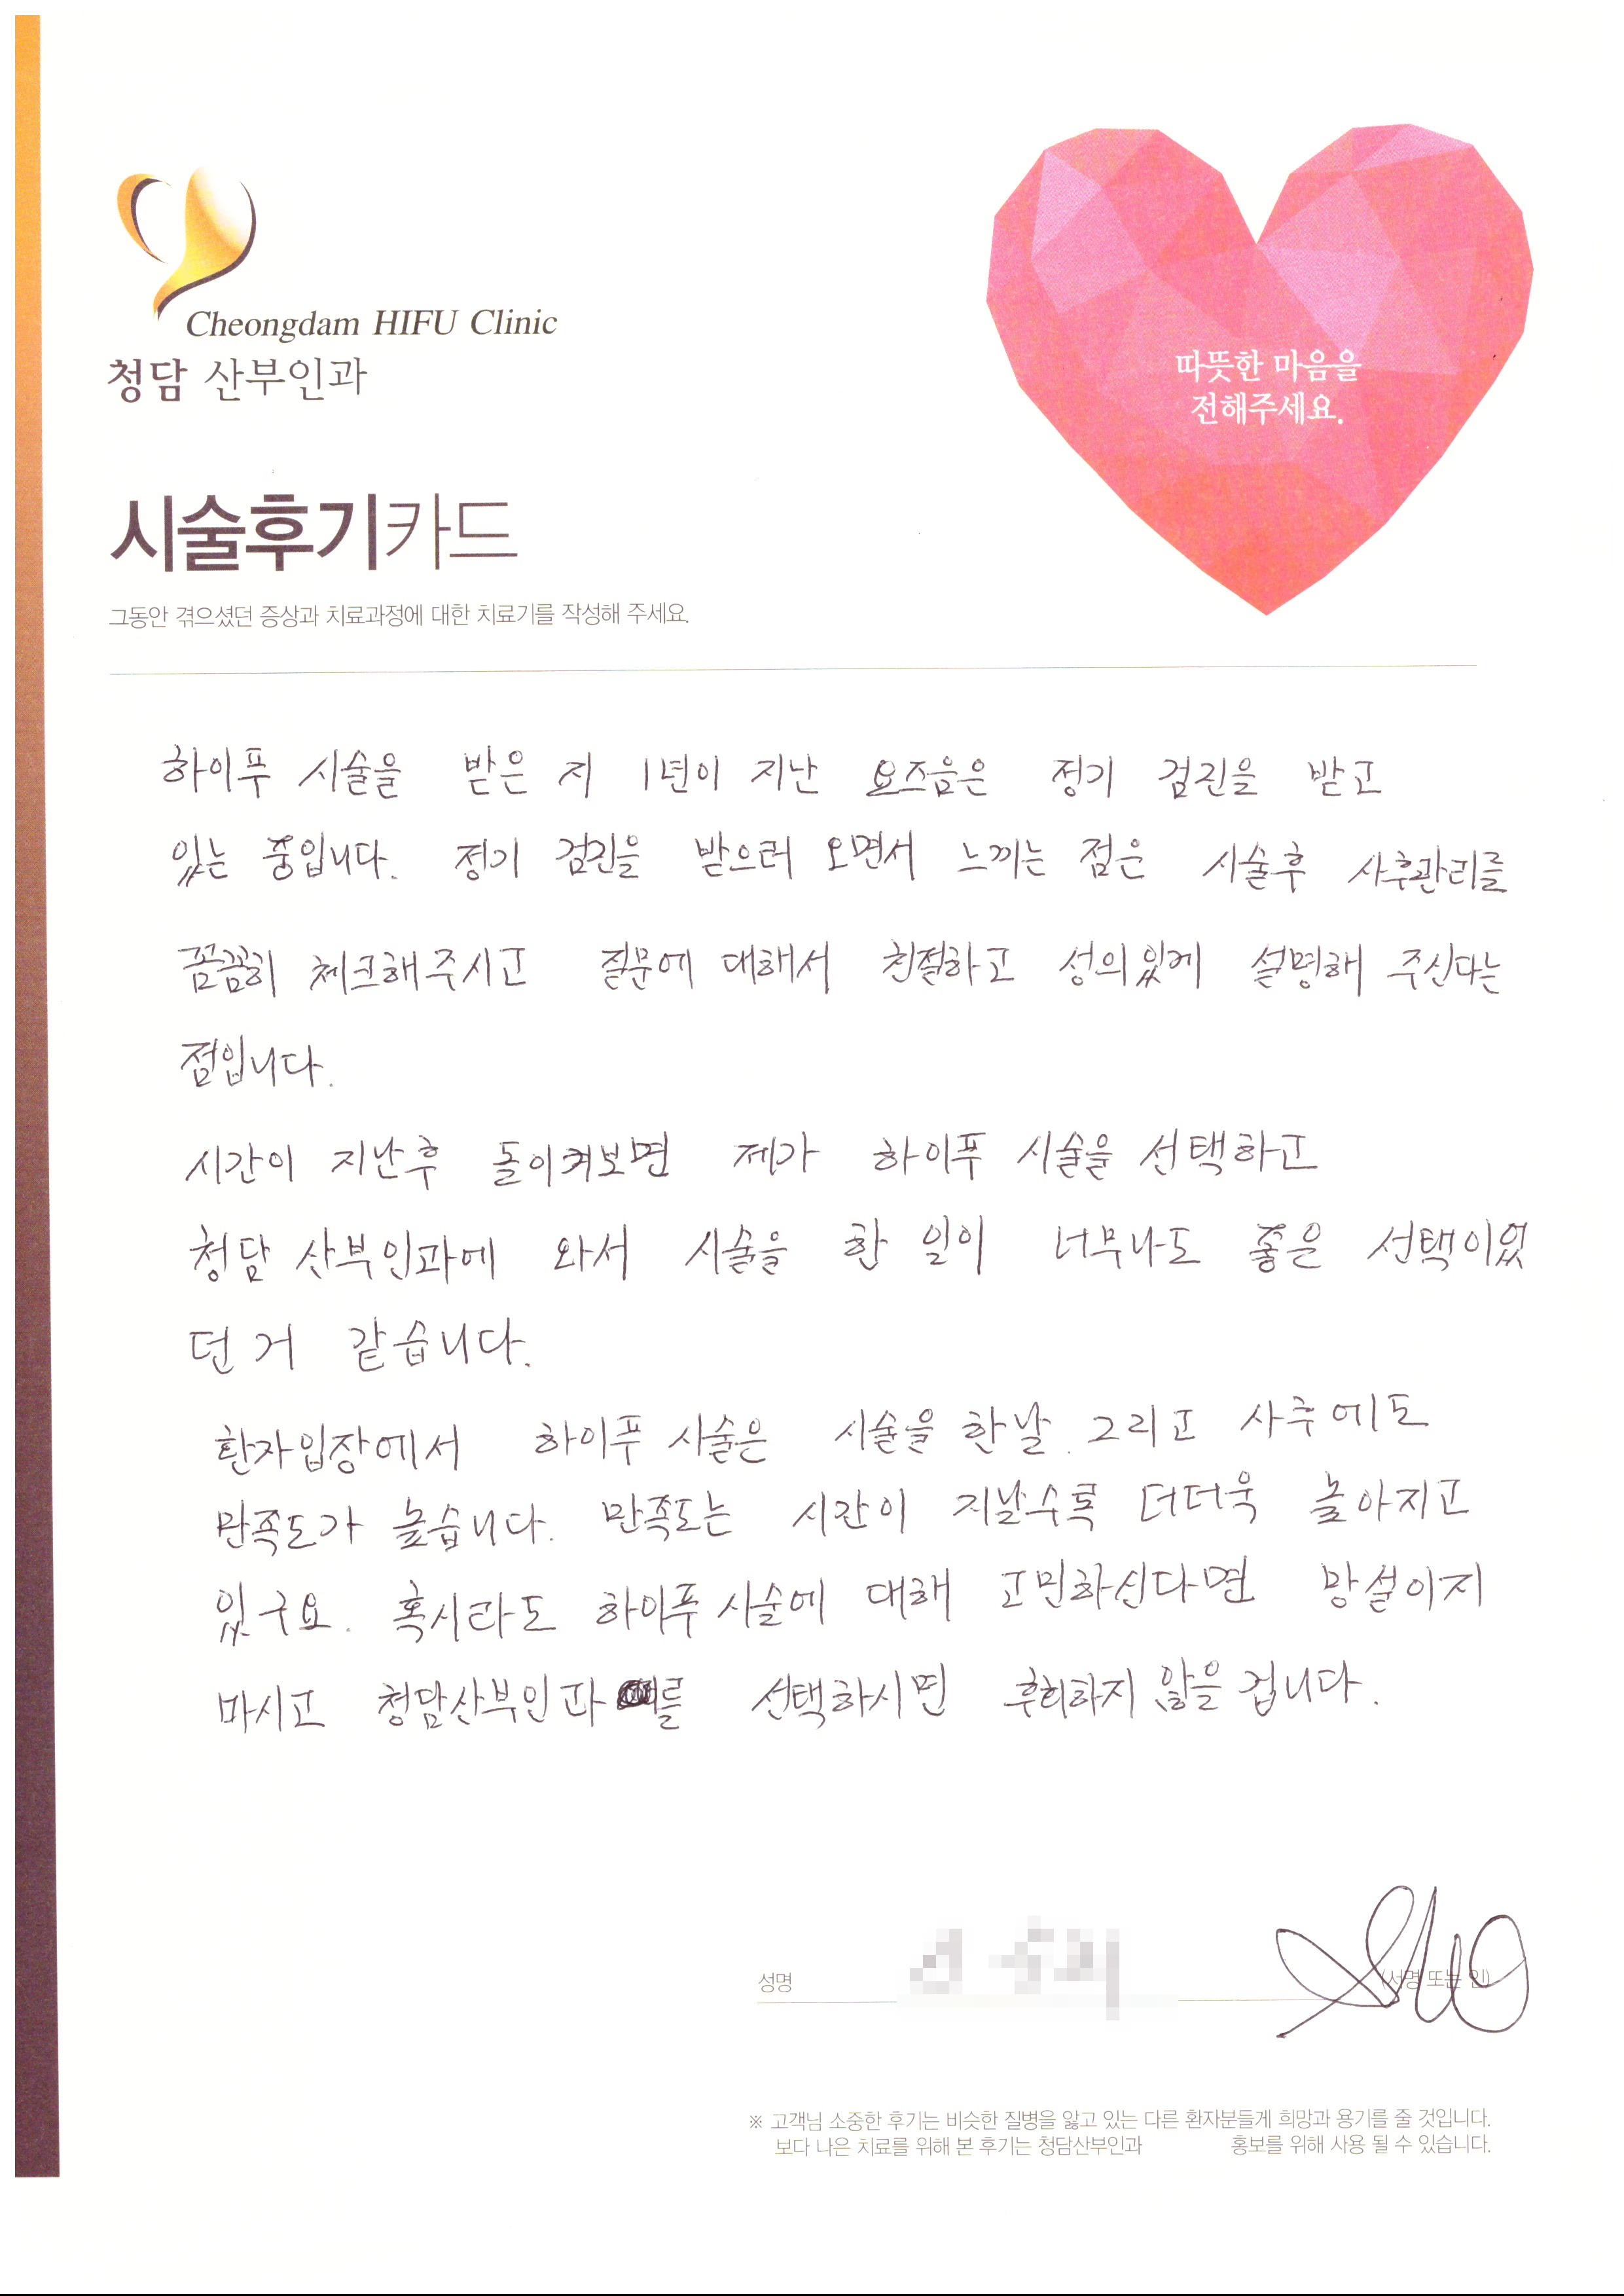 Cheongdam HIFU Clinic
청담 산부인과
따뜻한 마음을
전해주세요.
시술후기카드
그동안 겪으셨던 증상과 치료과정에 대한 치료기를 작성해 주세요.
하이푸 시술을 받은 지 1년이 지난 요즈음은 정기 검진을 받고
있는 중입니다. 정기 검진을 받으러 오면서 느끼는 점은 시술후 사후관리를
꼼꼼히 체크해주시고 질문에 대해서 친절하고 성의있게 설명해 주신다는
점입니다.
시간이 지난후 돌이켜보면 제가 하이푸 시술을 선택하고
청담 산부인과에 와서 시술을 한 일이 너무나도 좋은 선택이었
던 거 같습니다.
환자입장에서 하이푸 시술은 시술을 한날 그리고 사후에도
만족도가 높습니다. 만족도는 시간이 지날수록 더더욱 높아지고
있구요. 혹시라도 하이푸 시술에 대해 고민하신다면 망설이지
마시고 청담산부인과를 선택하시면 후회하지 않을 겁니다.
성명
(서명 또는 인)
※ 고객님 소중한 후기는 비슷한 질병을 앓고 있는 다른 환자분들게 희망과 용기를 줄 것입니다.
보다 나은 치료를 위해 본 후기는 청담산부인과 홍보를 위해 사용 될 수 있습니다.